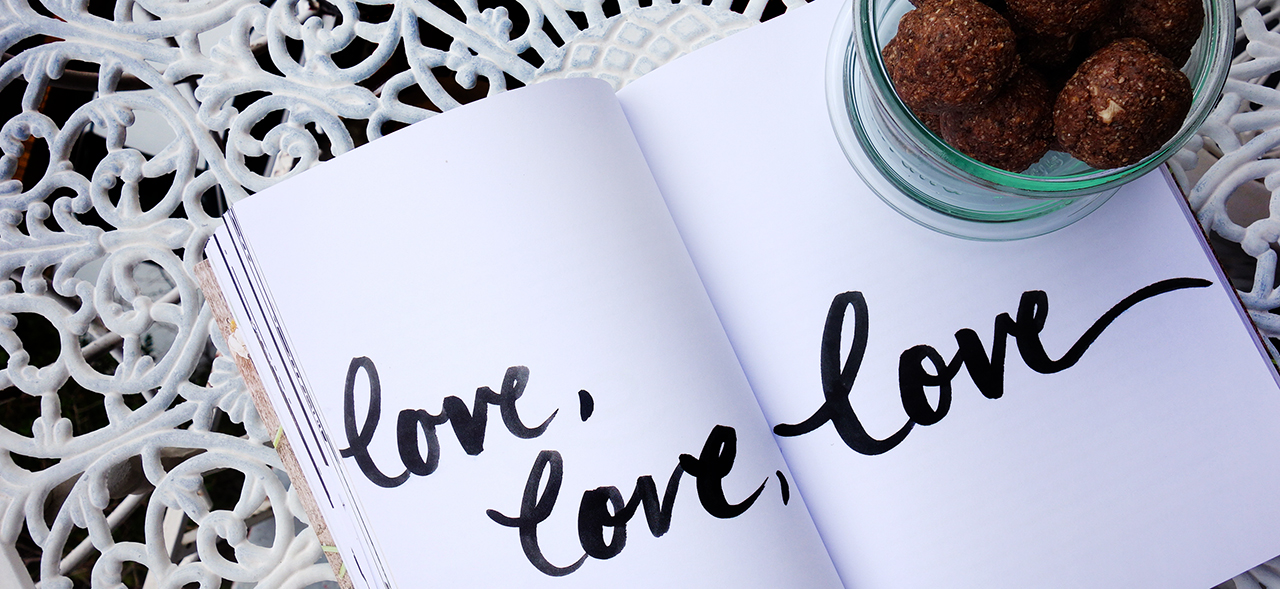 love,
love,
love